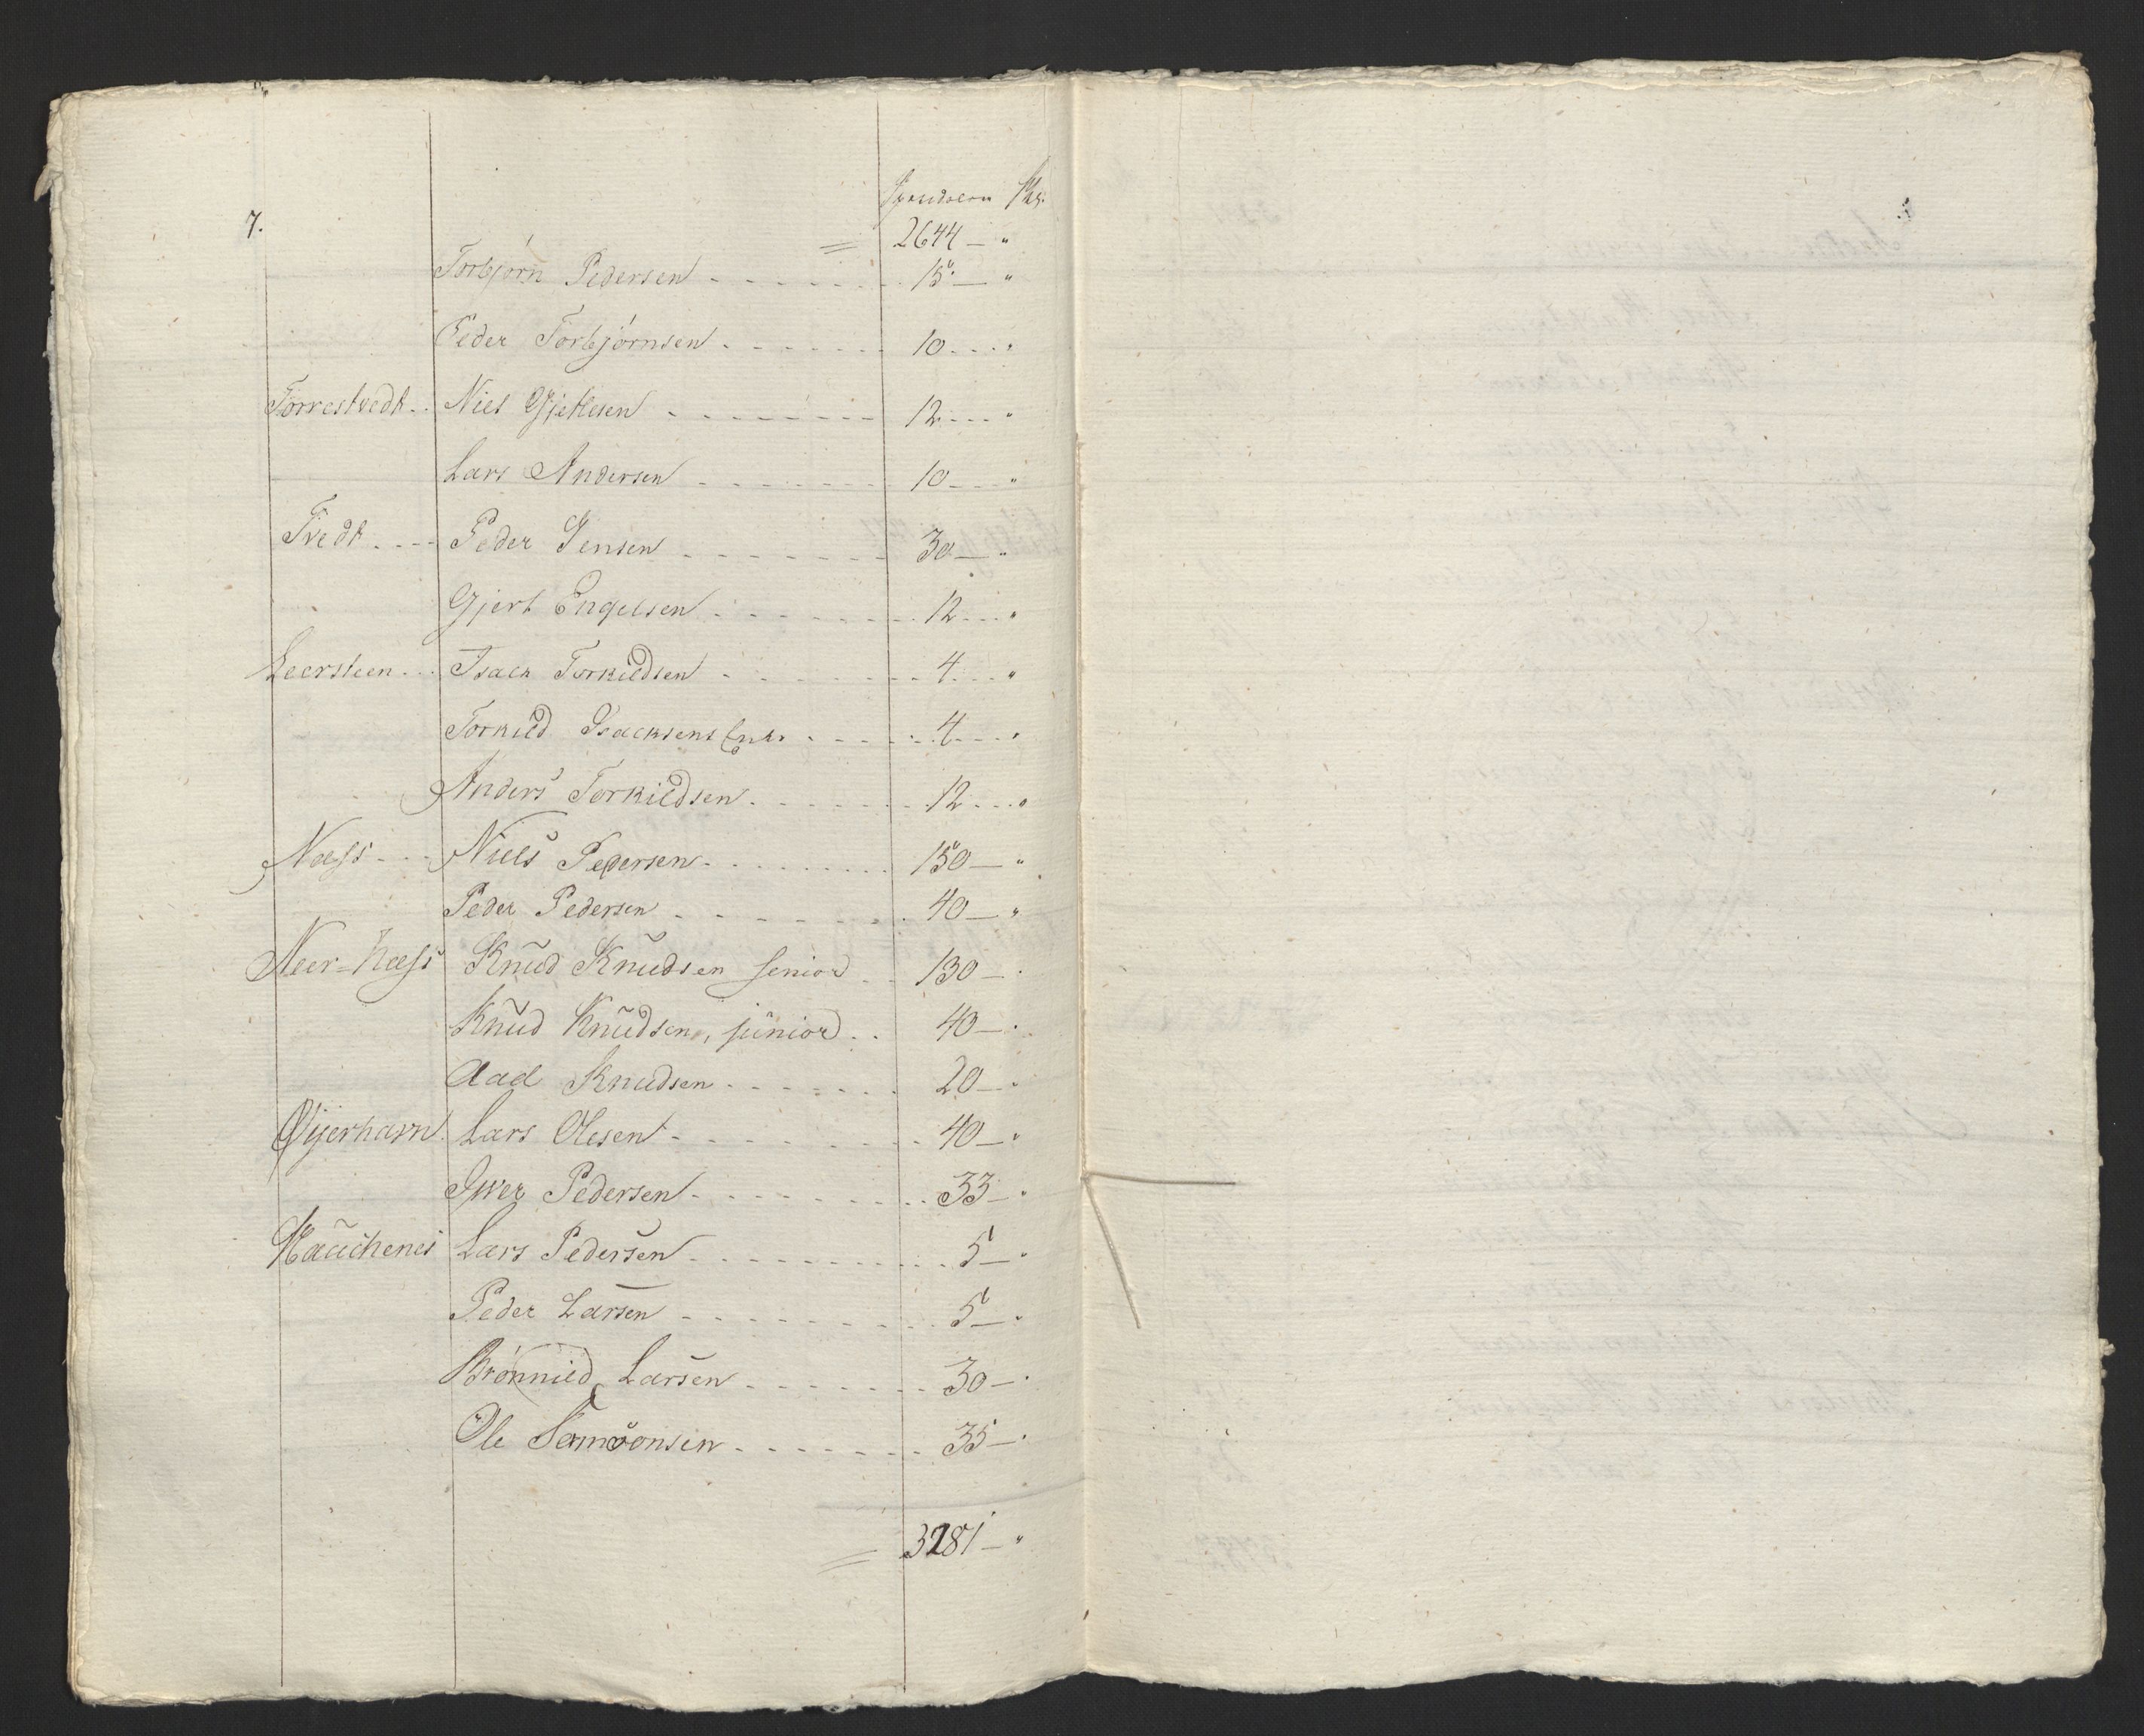 Specidaler Sk:
7. = 2644 — "
Torbjørn Pedersen - - - - - - - 15 — "
Peder Torbjørnsen - - - - - - 10 - - - "
Torrestvedt - - Niels Gjetlesen - - - - - - - 12 - - - "
Lars Andersen - - - - - - - 10 - - - "
Tvedt - - - - Peder Jensen - - - - - - - 30 — "
Gjert Engelsen - - - - - - - - 12 - - - "
Leersteen - - - Isach Torkildsen - - - - - - - 4 - - - "
Torkild Isachsens Enk: - - - - - 4 - - - "
Anders Torkildsen - - - - - - 12 - - - "
Næss - - - Niels Pedersen - - - - - - - - 150 — "
Peder Pedersen - - - - - - - 40 — "
Neer-Næss Knud Knudsen senior - - 130 — "
Knud Knudsen, junior - - 40 — "
Aad Knudsen - - - - - - 20 — "
Øijerhavn Lars Olesen - - - - - - - - 40 — "
Iver Pedersen - - - - - - - - 33 — "
Hauchenes Lars Pedersen - - - - - - - - 5 — "
Peder Larsen - - - - - - - - 5 — "
Brønnild Larsen - - - - - - - 30 — "
Ole Samsonsen - - - - - - - 35 — "
= 3281 — "